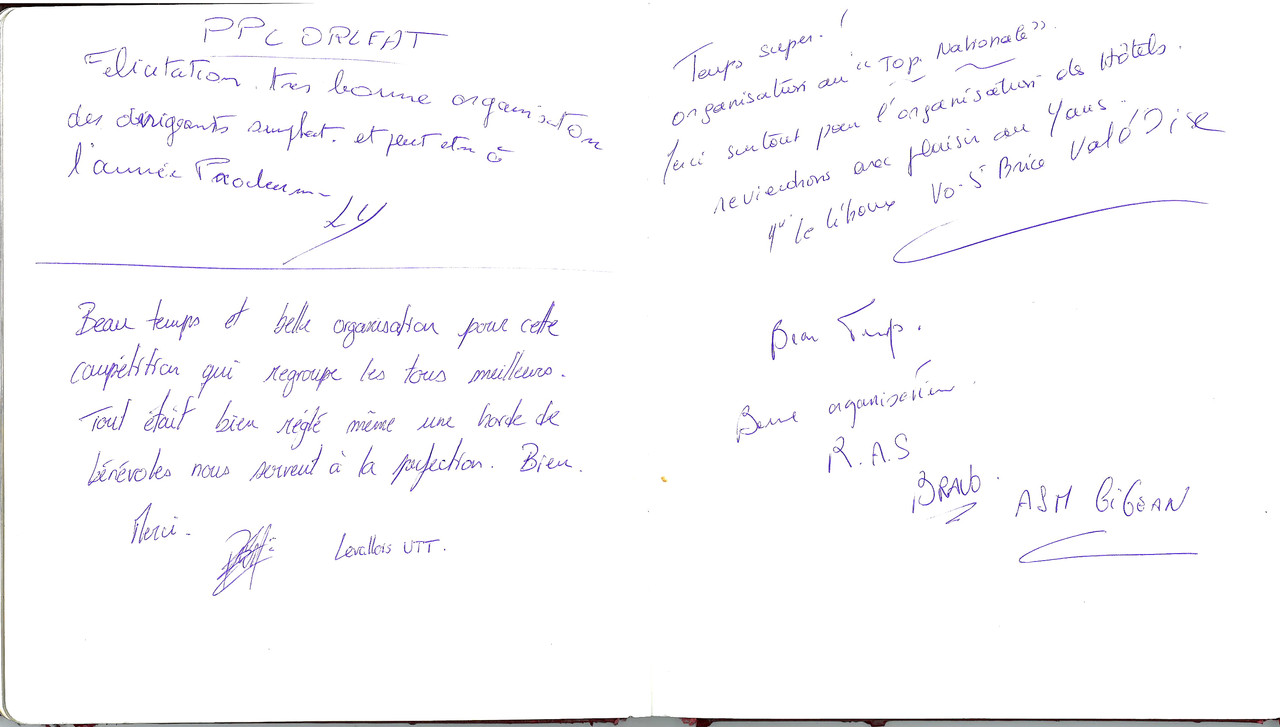 PPC ORLEAT
Félicitation. très bonne organisation
des dirigeants simplent. et peut etre à
l'année Prochaine
LY
Beau temps et belle organisation pour cette
compétition qui regroupe les tous meilleurs.
Tout était bien réglé même une horde de
bénévoles nous servent à la perfection. Bien.
Merci.
Levallois UTT.
Temps super. !
organisation au "Top. Nationale".
Merci surtout pour l'organisation des Hôtels.
reviendrons avec plaisir au
Le St Brice Val d'Oise
Beau Temps.
Bonne organisation.
R.A.S
BRAVO.
ASM GIGEAN